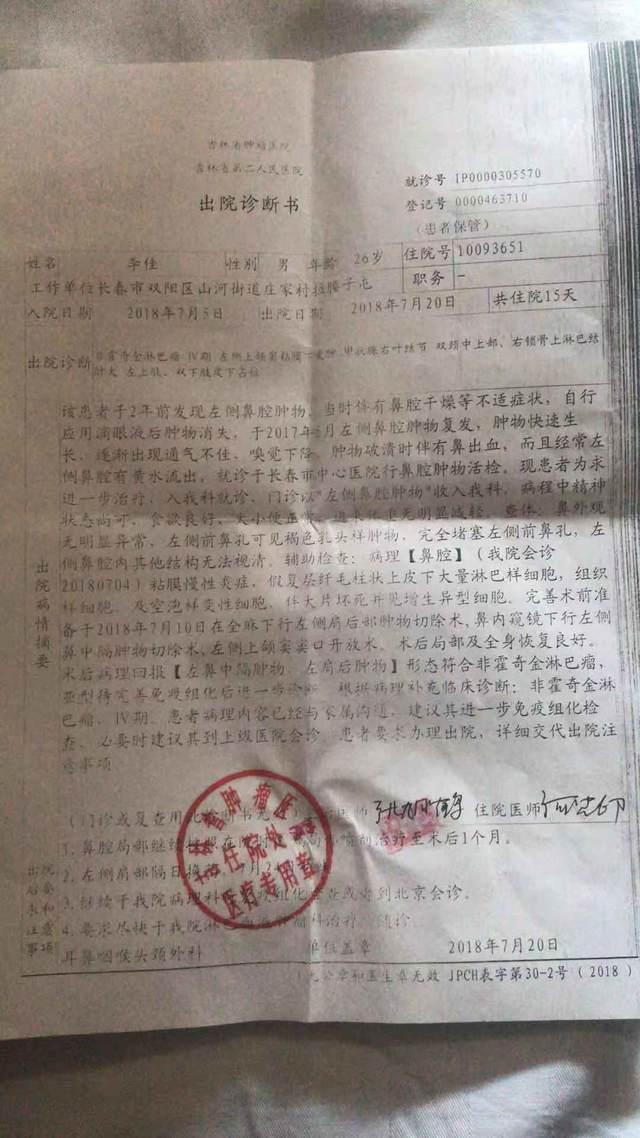 吉林省肿瘤医院
吉林省第二人民医院
出院诊断书
就诊号 IP0000305570
登记号 0000463710
(患者保管)
姓名 李佳 性别 男 年龄 26岁 住院号 10093651
工作单位 长春市双阳区山河街道庄家村拉腰子屯 职务 -
入院日期 2018年7月5日 出院日期 2018年7月20日 共住院15天
出院诊断 非霍奇金淋巴瘤 IV期 左侧上颌窦粘膜下囊肿 甲状腺右叶结节 双颈中上部、右锁骨上淋巴结
肿大 左上肢、双下肢皮下占位
出院病情摘要
该患者于2年前发现左侧鼻腔肿物,当时伴有鼻腔干燥等不适症状,自行
应用滴眼液后肿物消失,于2017年 月左侧鼻腔肿物复发,肿物快速生
长,逐渐出现通气不佳、嗅觉下降,肿物破溃时伴有鼻出血,而且经常左
侧鼻腔有黄水流出,就诊于长春市中心医院行鼻腔肿物活检。现患者为求
进一步治疗,入我科就诊,门诊以"左侧鼻腔肿物"收入我科,病程中精神
状态尚可,食欲良好,大小便正常,近来体重无明显减轻。查体:鼻外观
无明显异常,左侧前鼻孔可见褐色乳头样肿物,完全堵塞左侧前鼻孔,左
侧鼻腔内其他结构无法视清。辅助检查:病理【鼻腔】(我院会诊
20180704)粘膜慢性炎症,假复层纤毛柱状上皮下大量淋巴样细胞,组织
样细胞,及空泡样变性细胞,伴大片坏死并见增生异型细胞。完善术前准
备于2018年7月10日在全麻下行左侧肩后部肿物切除术,鼻内窥镜下行左侧
鼻中隔肿物切除术,左侧上颌窦窦口开放术。术后局部及全身恢复良好。
术后病理回报【左鼻中隔肿物、左肩后肿物】形态符合非霍奇金淋巴瘤,
亚型待完善免疫组化后进一步诊断。根据病理补充临床诊断:非霍奇金淋
巴瘤,IV期。患者病理内容已经与家属沟通,建议其进一步免疫组化检
查,必要时建议其到上级医院会诊,患者要求办理出院,详细交代出院注
意事项
(门诊或复查用此诊断书 住院医师
出院后要求和注意事项
1.鼻腔局部继续 治疗至术后1个月。
2.左侧肩部隔日换
3.继续于我院病理科 组化检查或者到北京会诊。
4.要求尽快于我院淋巴 科治疗。随诊
耳鼻咽喉头颈外科 单位盖章 2018年7月20日
(无公章和医生章无效 JPCH表字第30-2号(2018)
肿瘤医
住院处
医疗专用章